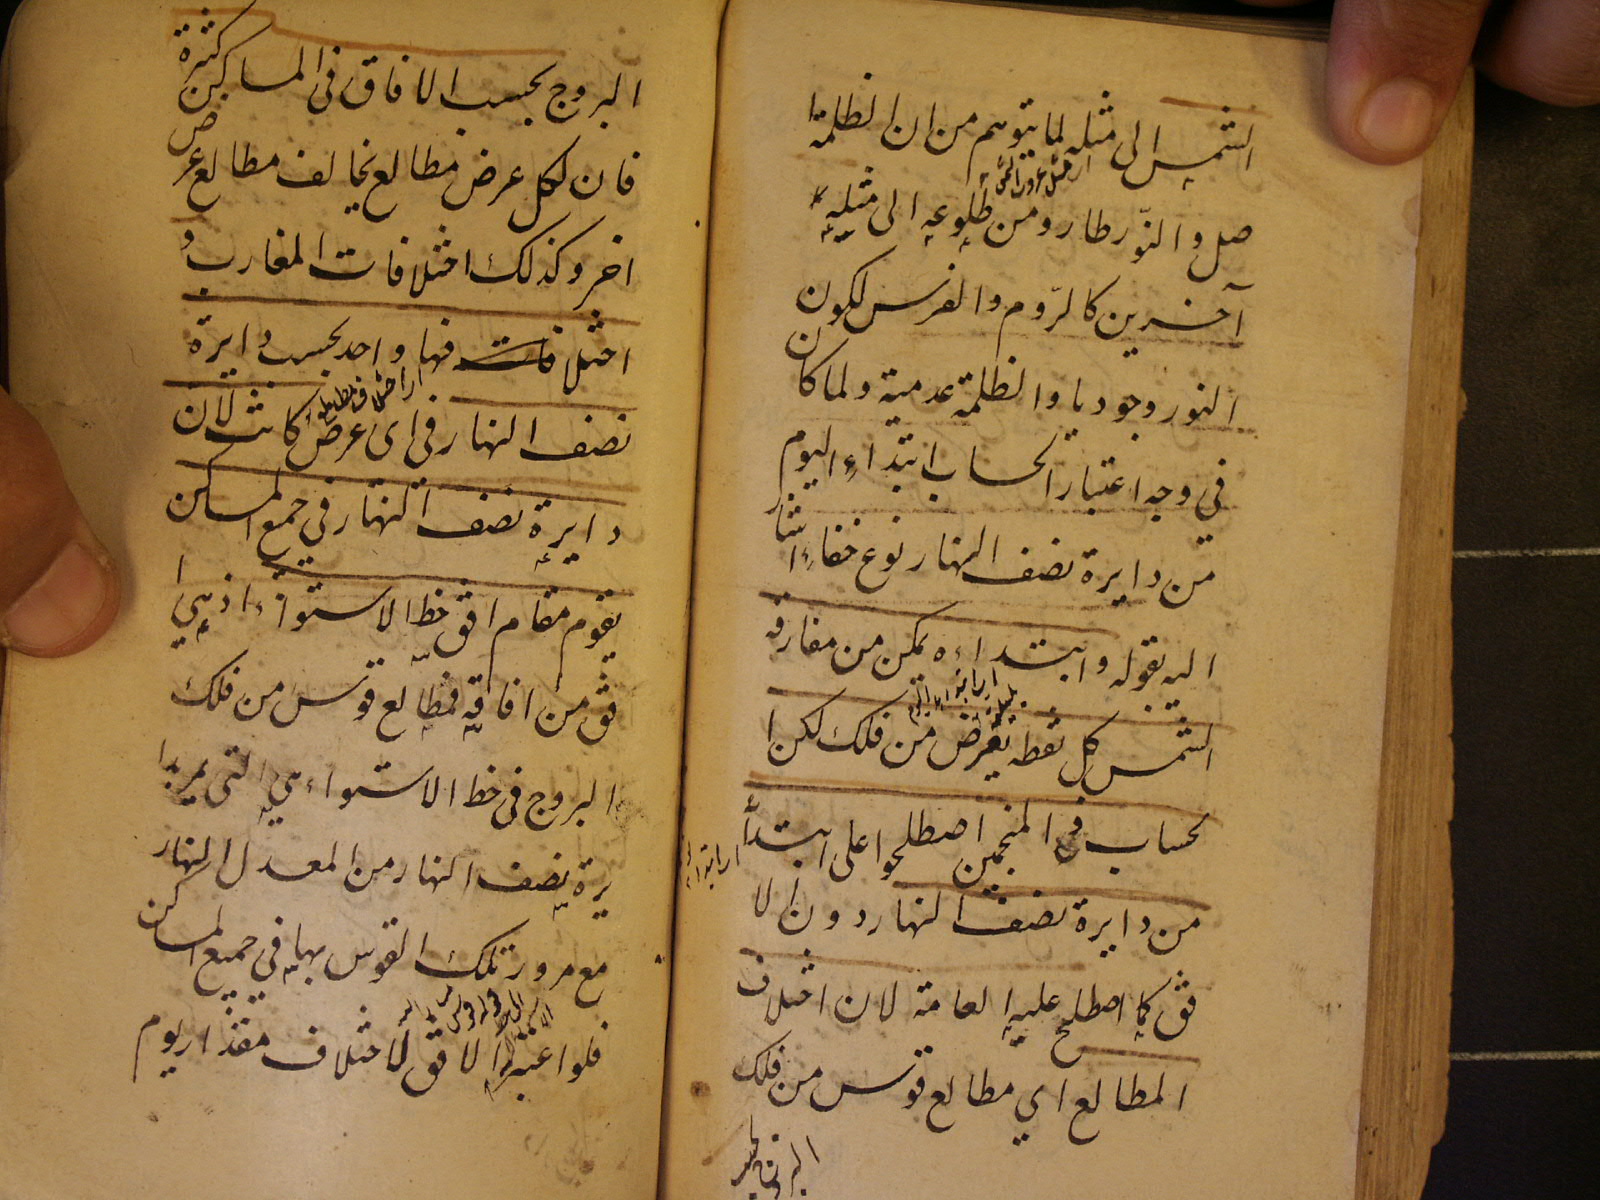 الشمس الى مثله لما يتوهم من ان الظلمة ا
صل و النّور طار و من طلوعه الى مثليه
آخرين كالرّوم والفرس لكون
النور وجوديا والظلمة عدمية ولما كان
في وجه اعتبار الحساب ابتداء اليوم
من دايرة نصف النهار نوع خفاء اشار
اليه بقوله وابتداءه يمكن من مفارقة
الشمس كل نقطة تفرض من فلك لكن ا
لحساب في المنجمين اصطلحوا على ابتدأ
من دايرة نصف النهار دون الا
فق كما اصطلح عليه العامة لان اختلاف
المطالع اي مطالع قوس من فلك
البروج بحسب
البروج بحسب الافاق في المساكن كثرة
فان لكل عرض مطالع تخالف مطالع عرض
اخر وكذلك اختلافات المغارب و
اختلافات فيها واحد بحسب دايرة
نصف النهار في اى عرض كانت لان
دايرة نصف النهار في جميع المساكن
يقوم مقام افق خط الاستواء اذ هي ا
فق من افاقه فمطالع قوس من فلك
البروج في خط الاستواء هي التى يمر بدا
يرة نصف النهار من المعدل النهار
مع مرور تلك القوس بها في جميع المساكن
فلو اعتبر الافق لاختلاف مقدار يوم